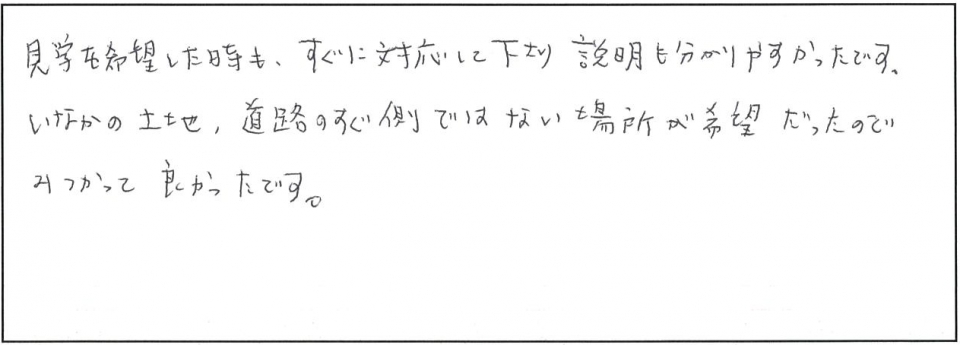 見学を希望した時も、すぐに対応して下さり 説明も分かりやすかったです。
いなかの土地, 道路のすぐ側ではない場所が希望だったので
みつかって良かったです。